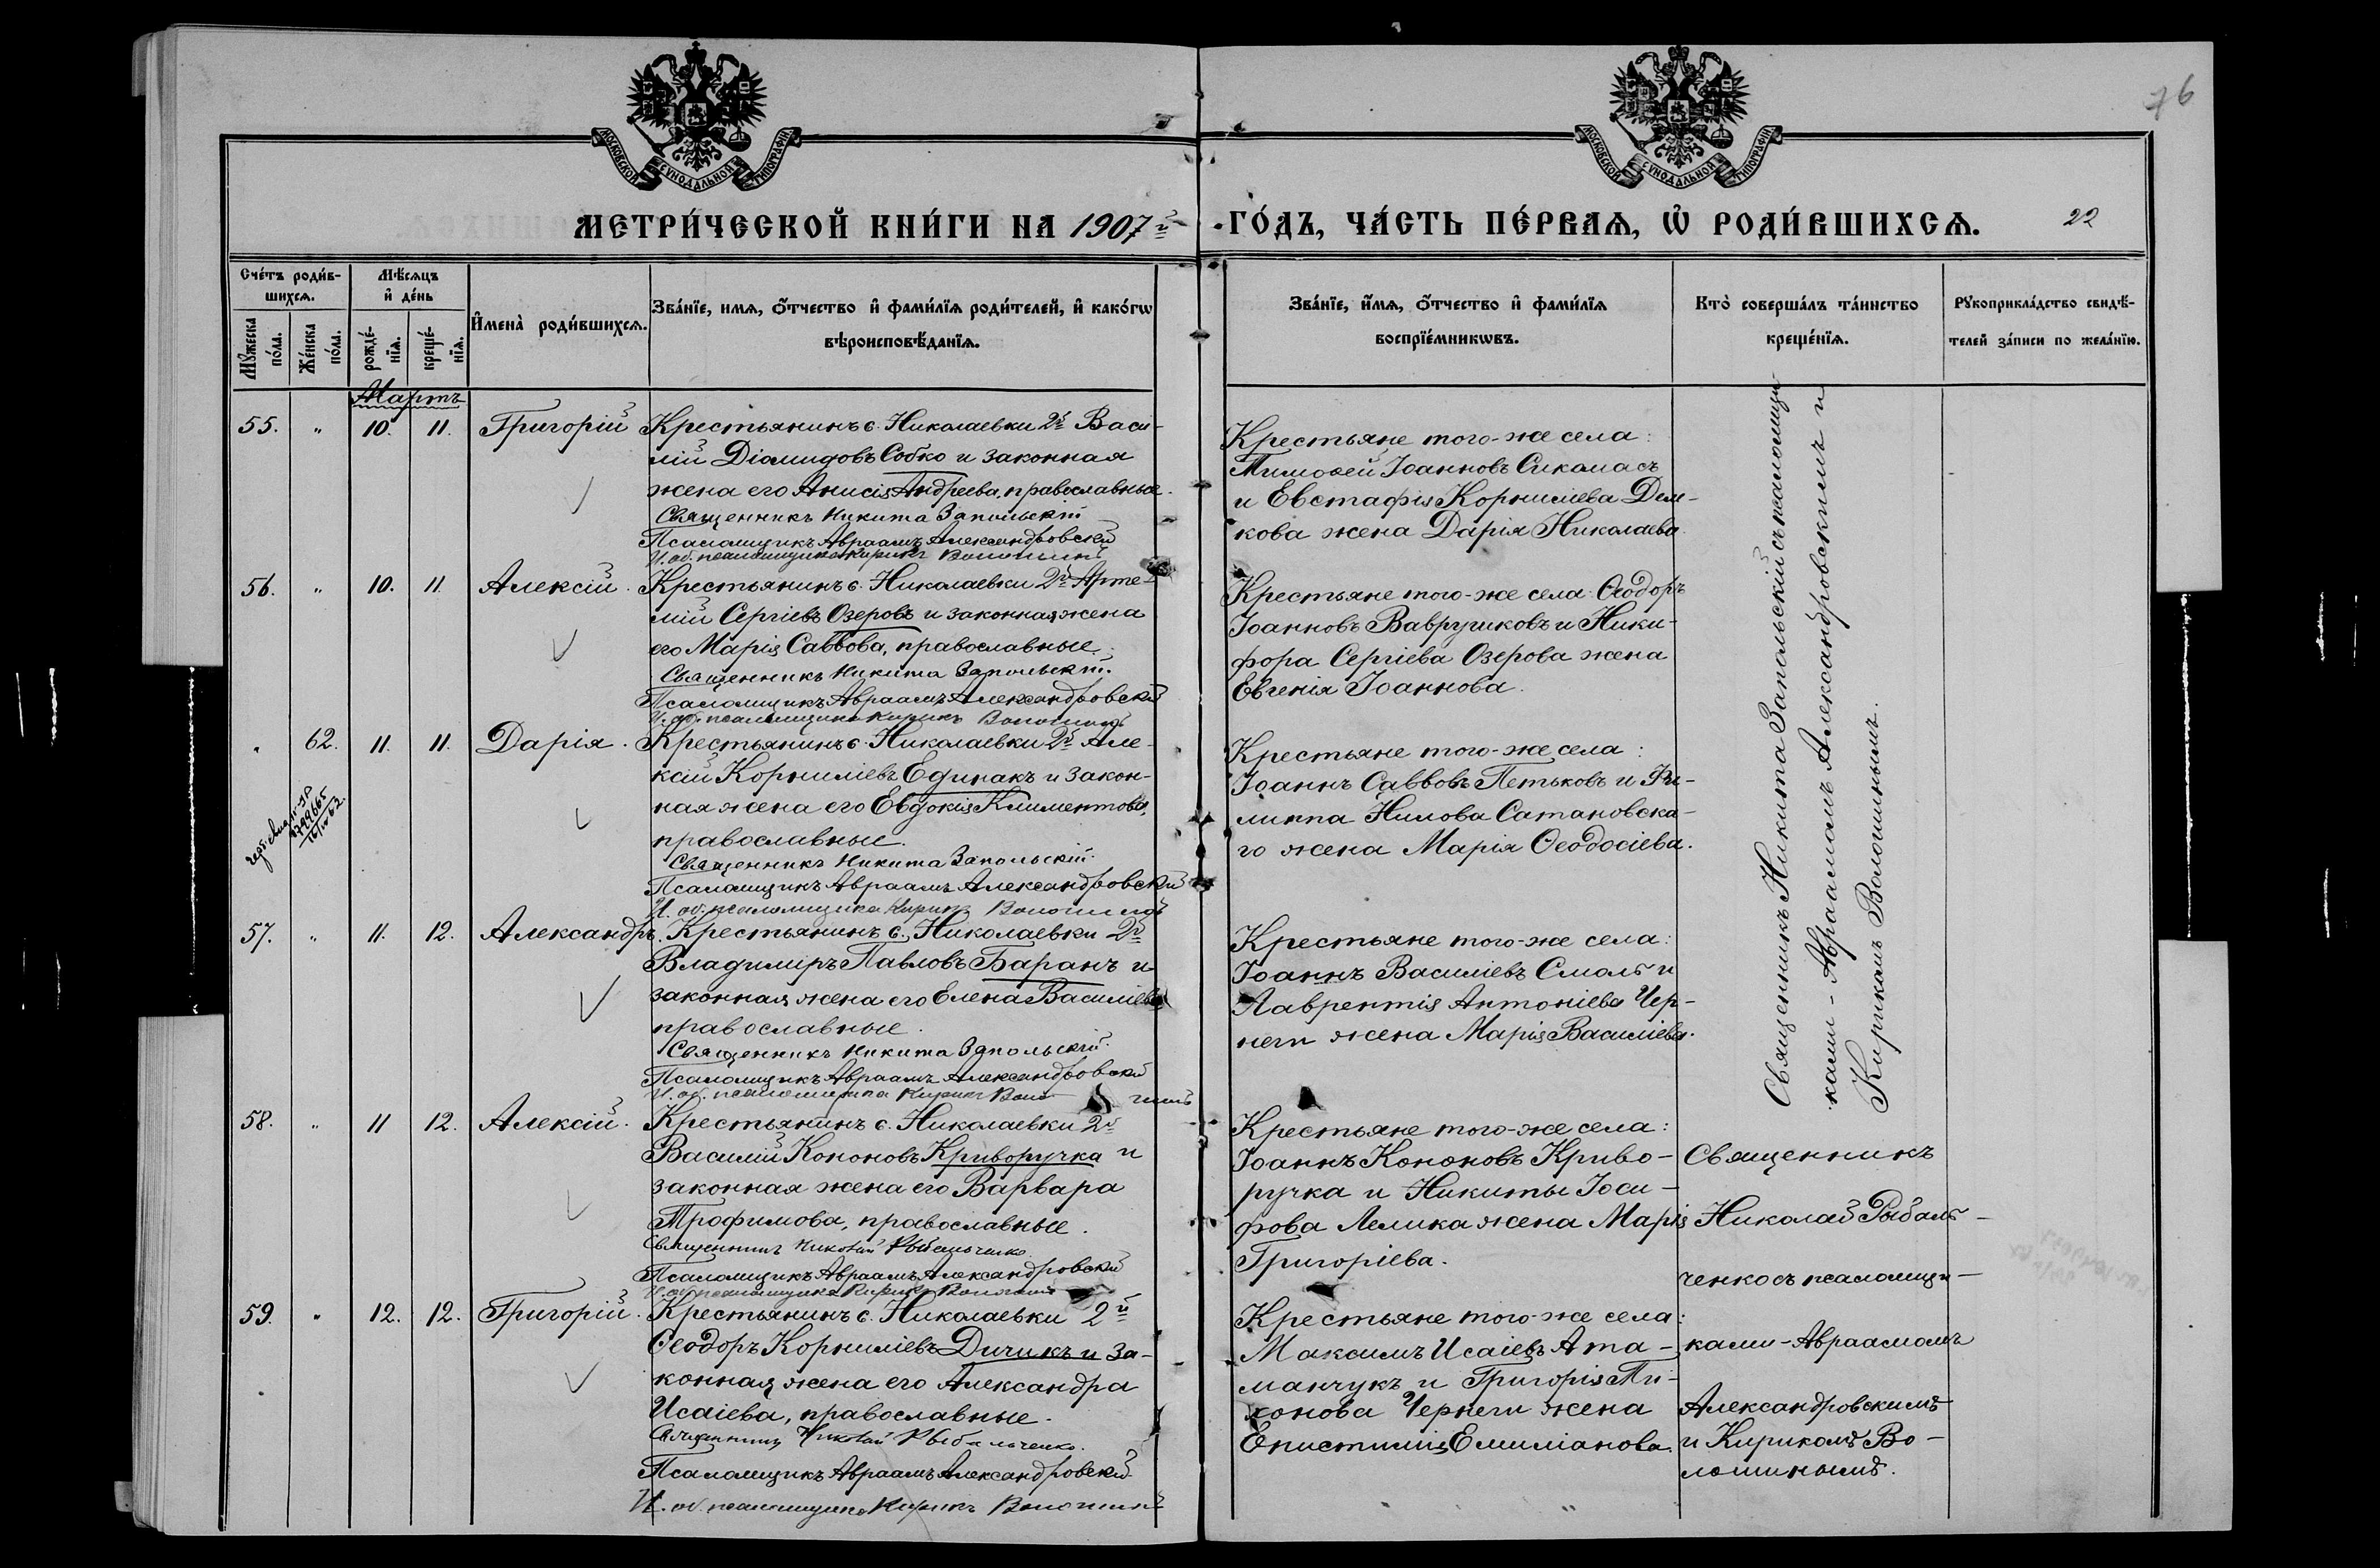 76
МОСКОВСКОЙ СѴНОДАЛЬНОЙ ТИПОГРАФІИ
МОСКОВСКОЙ СѴНОДАЛЬНОЙ ТИПОГРАФІИ
МЕТРИ́ЧЕСКОЙ КНИ́ГИ НА 1907й ГО́ДЪ, ЧА́СТЬ ПЕ́РВАѦ, Ѡ҆ РОДИ́ВШИХСѦ. 22
Сче́тъ роди́в-
шихсѧ.
Мꙋ́жеска по́ла.
Же́нска по́ла.
Мѣ́сѧцъ
и҆ де́нь
рожде́-нїѧ.
креще́-нїѧ.
И҆мена̀ роди́вшихсѧ.
Зва́нїе, имѧ, ѻ҆́тчество и҆ фами́лїѧ роди́телей, и҆ како́гѡ
вѣроисповѣ́данїѧ.
Зва́нїе, и҆́мѧ, ѻ҆́тчество и҆ фами́лїѧ
воспрїе́мникѡвъ.
Кто̀ соверша́лъ та́инство
креще́нїѧ.
Рꙋкоприкла́дство свидѣ́-
телей за́писи по жела́нїю.
Мартъ
55. " 10. 11. Григорій
Крестьянинъ с. Николаевки 2й Васи-
лій Діомидовъ Собко и законная
жена его Анисія Андреева, православные.
Священникъ Никита Запольскій
Псаломщикъ Авраамъ Александровскій
И. об. псаломщика Кирикъ Волошинъ
Крестьяне того-же села:
Тимоѳей Іоанновъ Сикамасъ
и Евстафія Корниліева Деле-
кова жена Дарія Николаева
56. " 10. 11. Алексій.
Крестьянинъ с. Николаевки 2й Арте-
мій Сергіевъ Озеровъ и законная жена
его Марія Саввова, православные.
Священникъ Никита Запольскій.
Псаломщикъ Авраамъ Александровскій
И. об. псаломщика Кирикъ Волошинъ
Крестьяне того-же села: Ѳеодоръ
Іоанновъ Ваврушковъ и Ники-
фора Сергіева Озерова жена
Евгенія Іоаннова.
" 62. 11. 11. Дарія.
Крестьянинъ с. Николаевки 2й Але-
ксій Корниліевъ Единакъ и закон-
ная жена его Евдокія Климентова,
православные.
Священникъ Никита Запольскій.
Псаломщикъ Авраамъ Александровскій
И. об. псаломщика Кирикъ Волошинъ
Крестьяне того-же села:
Іоаннъ Саввовъ Петьковъ и Фи-
липпа Нилова Сатановска-
го жена Марія Ѳеодосіева.
57. " 11. 12. Александръ.
Крестьянинъ с. Николаевки 2й
Владиміръ Павловъ Баранъ и
законная жена его Елена Василіева
православные.
Священникъ Никита Запольскій.
Псаломщикъ Авраамъ Александровскій
И. об. псаломщика Кирикъ
Крестьяне того-же села:
Іоаннъ Василіевъ Смаль и
Лаврентія Антоніева Чер-
неги жена Марія Василіева.
Священникъ Никита Запольскій съ псаломщи-
ками - Авраамомъ Александровскимъ и
Кирикомъ Волошинымъ.
58. " 11 12. Алексій.
Крестьянинъ с. Николаевки 2й
Василій Кононовъ Криворучка и
законная жена его Варвара
Трофимова, православные.
Священникъ Николай Рыбальченко
Псаломщикъ Авраамъ Александровскій
И. об. псаломщика Кирикъ Волошинъ
Крестьяне того-же села:
Іоаннъ Кононовъ Криво-
ручка и Никиты Іоси-
фова Лелика жена Марія
Григоріева.
59. " 12. 12. Григорій.
Крестьянинъ с. Николаевки 2й
Ѳеодоръ Корниліевъ Дичикъ и за-
конная жена его Александра
Исаіева, православные.
Священникъ Николай Рыбальченко.
Псаломщикъ Авраамъ Александровскій
И. об. псаломщика Кирикъ Волошинъ
Крестьяне того-же села:
Максимъ Исаіевъ Ата-
манчукъ и Григорія Ти-
хонова Чернеги жена
Епистимія Емиліанова.
Священникъ
Николай Рыбаль-
ченко съ псаломщи-
ками - Авраамомъ
Александровскимъ
и Кирикомъ Во-
лошинымъ.